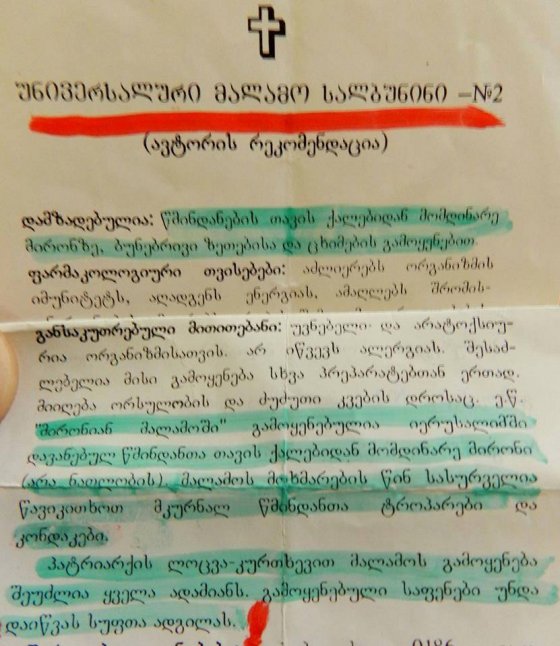 უნივერსალური მალამო სალბუნინი –№2
(ავტორის რეკომენდაცია)
დამზადებულია: წმინდანების თავის ქალებიდან მომდინარე
მირონზე, ბუნებრივი ზეთებისა და ცხიმების გამოყენებით.
ფარმაკოლოგიური თვისებები: აძლიერებს ორგანიზმის
იმუნიტეტს, აღადგენს ენერგიას, ამაღლებს შრომის-
განსაკუთრებული მითითებანი: უვნებელი და არატოქსიუ-
რია ორგანიზმისათვის. არ იწვევს ალერგიას. შესაძ-
ლებელია მისი გამოყენება სხვა პრეპარატებთან ერთად.
მიიღება ორსულობის და ძუძუთი კვების დროსაც. ე.წ.
"მირონიან მალამოში" გამოყენებულია იერუსალიმში
დავანებულ წმინდანთა თავის ქალებიდან მომდინარე მირონი
(არა ნათლობის). მალამოს მოხმარების წინ სასურველია
წავიკითხოთ მკურნალ წმინდანთა ტროპარები და
კონდაკები.
პატრიარქის ლოცვა-კურთხევით მალამოს გამოყენება
შეუძლია ყველა ადამიანს. გამოყენებული საფენები უნდა
დაიწვას სუფთა ადგილას.